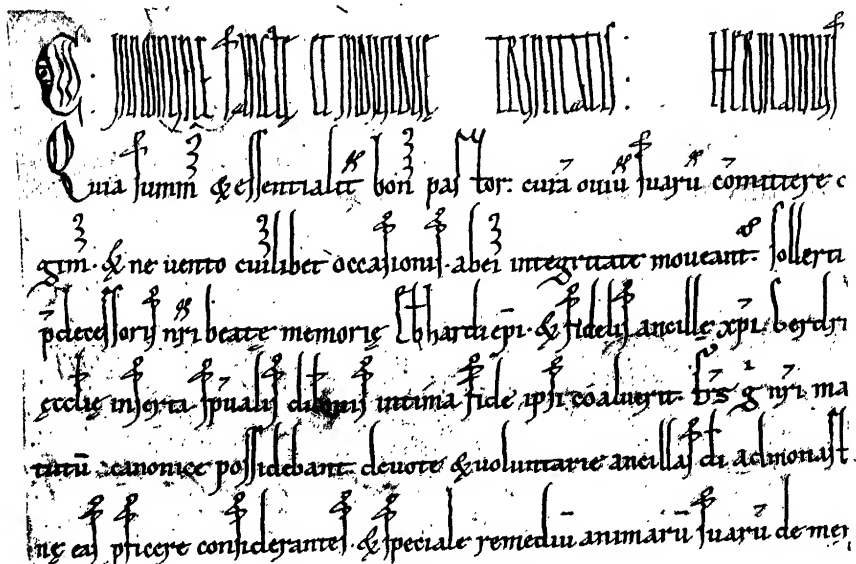 C. IN NOMINE SANCTE ET INDIVIDUE TRINITATIS: HERIMANNUS
Quia summi & essentialit boni pastor: curā ouiū suarū cōmittere c
gim. & ne uento cuilibet occasionis. abei integritate moueant. sollerti
p̄decessoris nr̄i beate memorię ep̄i. & fidelis ancillę xp̄i. berdri
ęcclię inserta. sp̄ualis intima fide ipsi coaluerit. g̊ nr̄i ma
tutū canonice possidebant. deuote & uoluntarie ancillas dī admonast
nę eas p̄ficere considerantes. & speciale remediū animarū suarū de mer